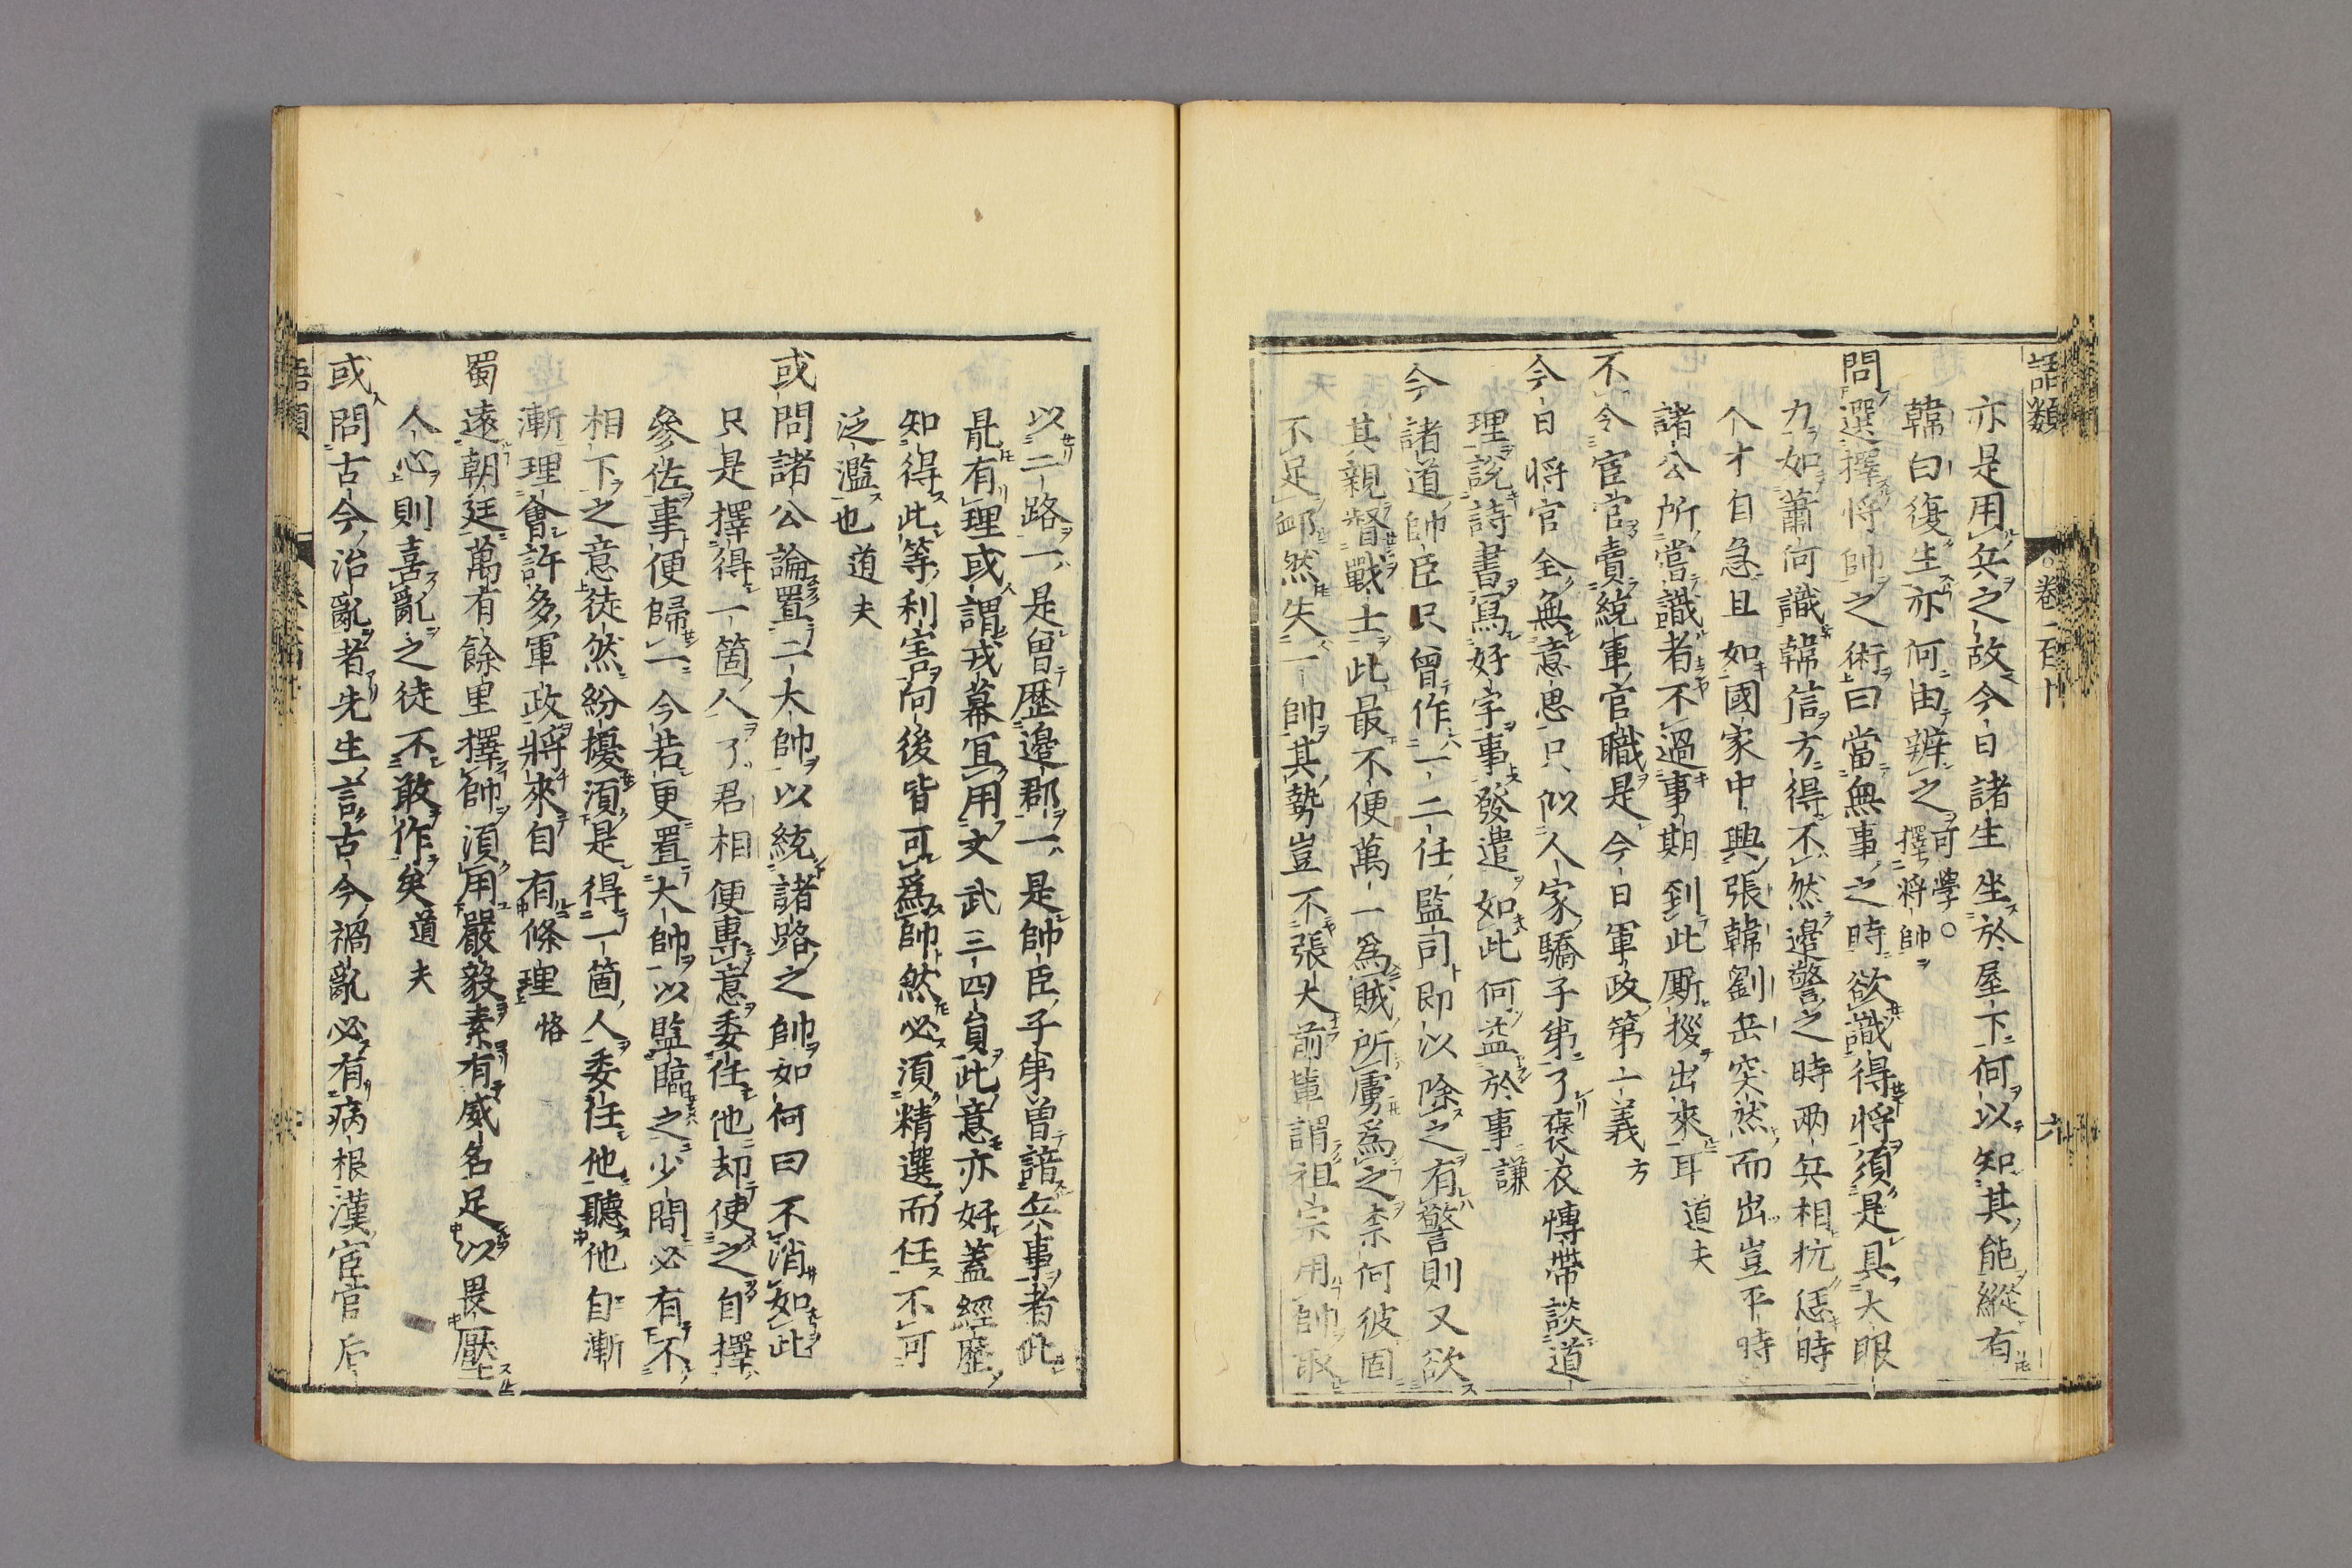 語類
卷一百十
六
亦是用兵之故今日諸生坐於屋下何以知其能縱有
韓白復生亦何由辨之可學○擇將帥
問選擇將帥之術曰當無事之時欲識得將須是具大眼
力如蕭何識韓信方得不然邊警之時兩兵相抗恁時
人才自急且如國家中興張韓劉岳突然而出豈平時
諸公所嘗識者不過事期到此厮拶出來耳道夫
不令宦官賣統軍官職是今日軍政第一義方
今日將官全無意思只似人家驕子弟了褒衣博帶談道
理說詩書寫好字事發遣如此何益於事謙
今諸道帥臣只曾作一二任監司即以除之有警則又欲
其親督戰士此最不便萬一爲賊所虜爲之柰何彼固
不足䘏然失一帥其勢豈不張大前輩謂祖宗用帥取
以二路一是曾歷邊郡一是帥臣子弟曾諳兵事者此
最有理或謂戎幕宜用文武三四員此意亦好蓋經歷
知得此等利害向後皆可爲帥然必須精選而任不可
泛濫也道夫
或問諸公論置二大帥以統諸路之帥如何曰不消如此
只是擇得一箇人了君相便專意委任他却使之自擇
參佐事便歸一今若更置大帥以監臨之少間必有不
相下之意徒然紛擾須是得一箇人委任他聽他自漸
漸理會許多軍政將來自有條理恪
蜀遠朝廷萬有餘里擇帥須用嚴毅素有威名足以畏壓
人心則喜亂之徒不敢作矣道夫
或問古今治亂者先生言古今禍亂必有病根漢宦官后
語類